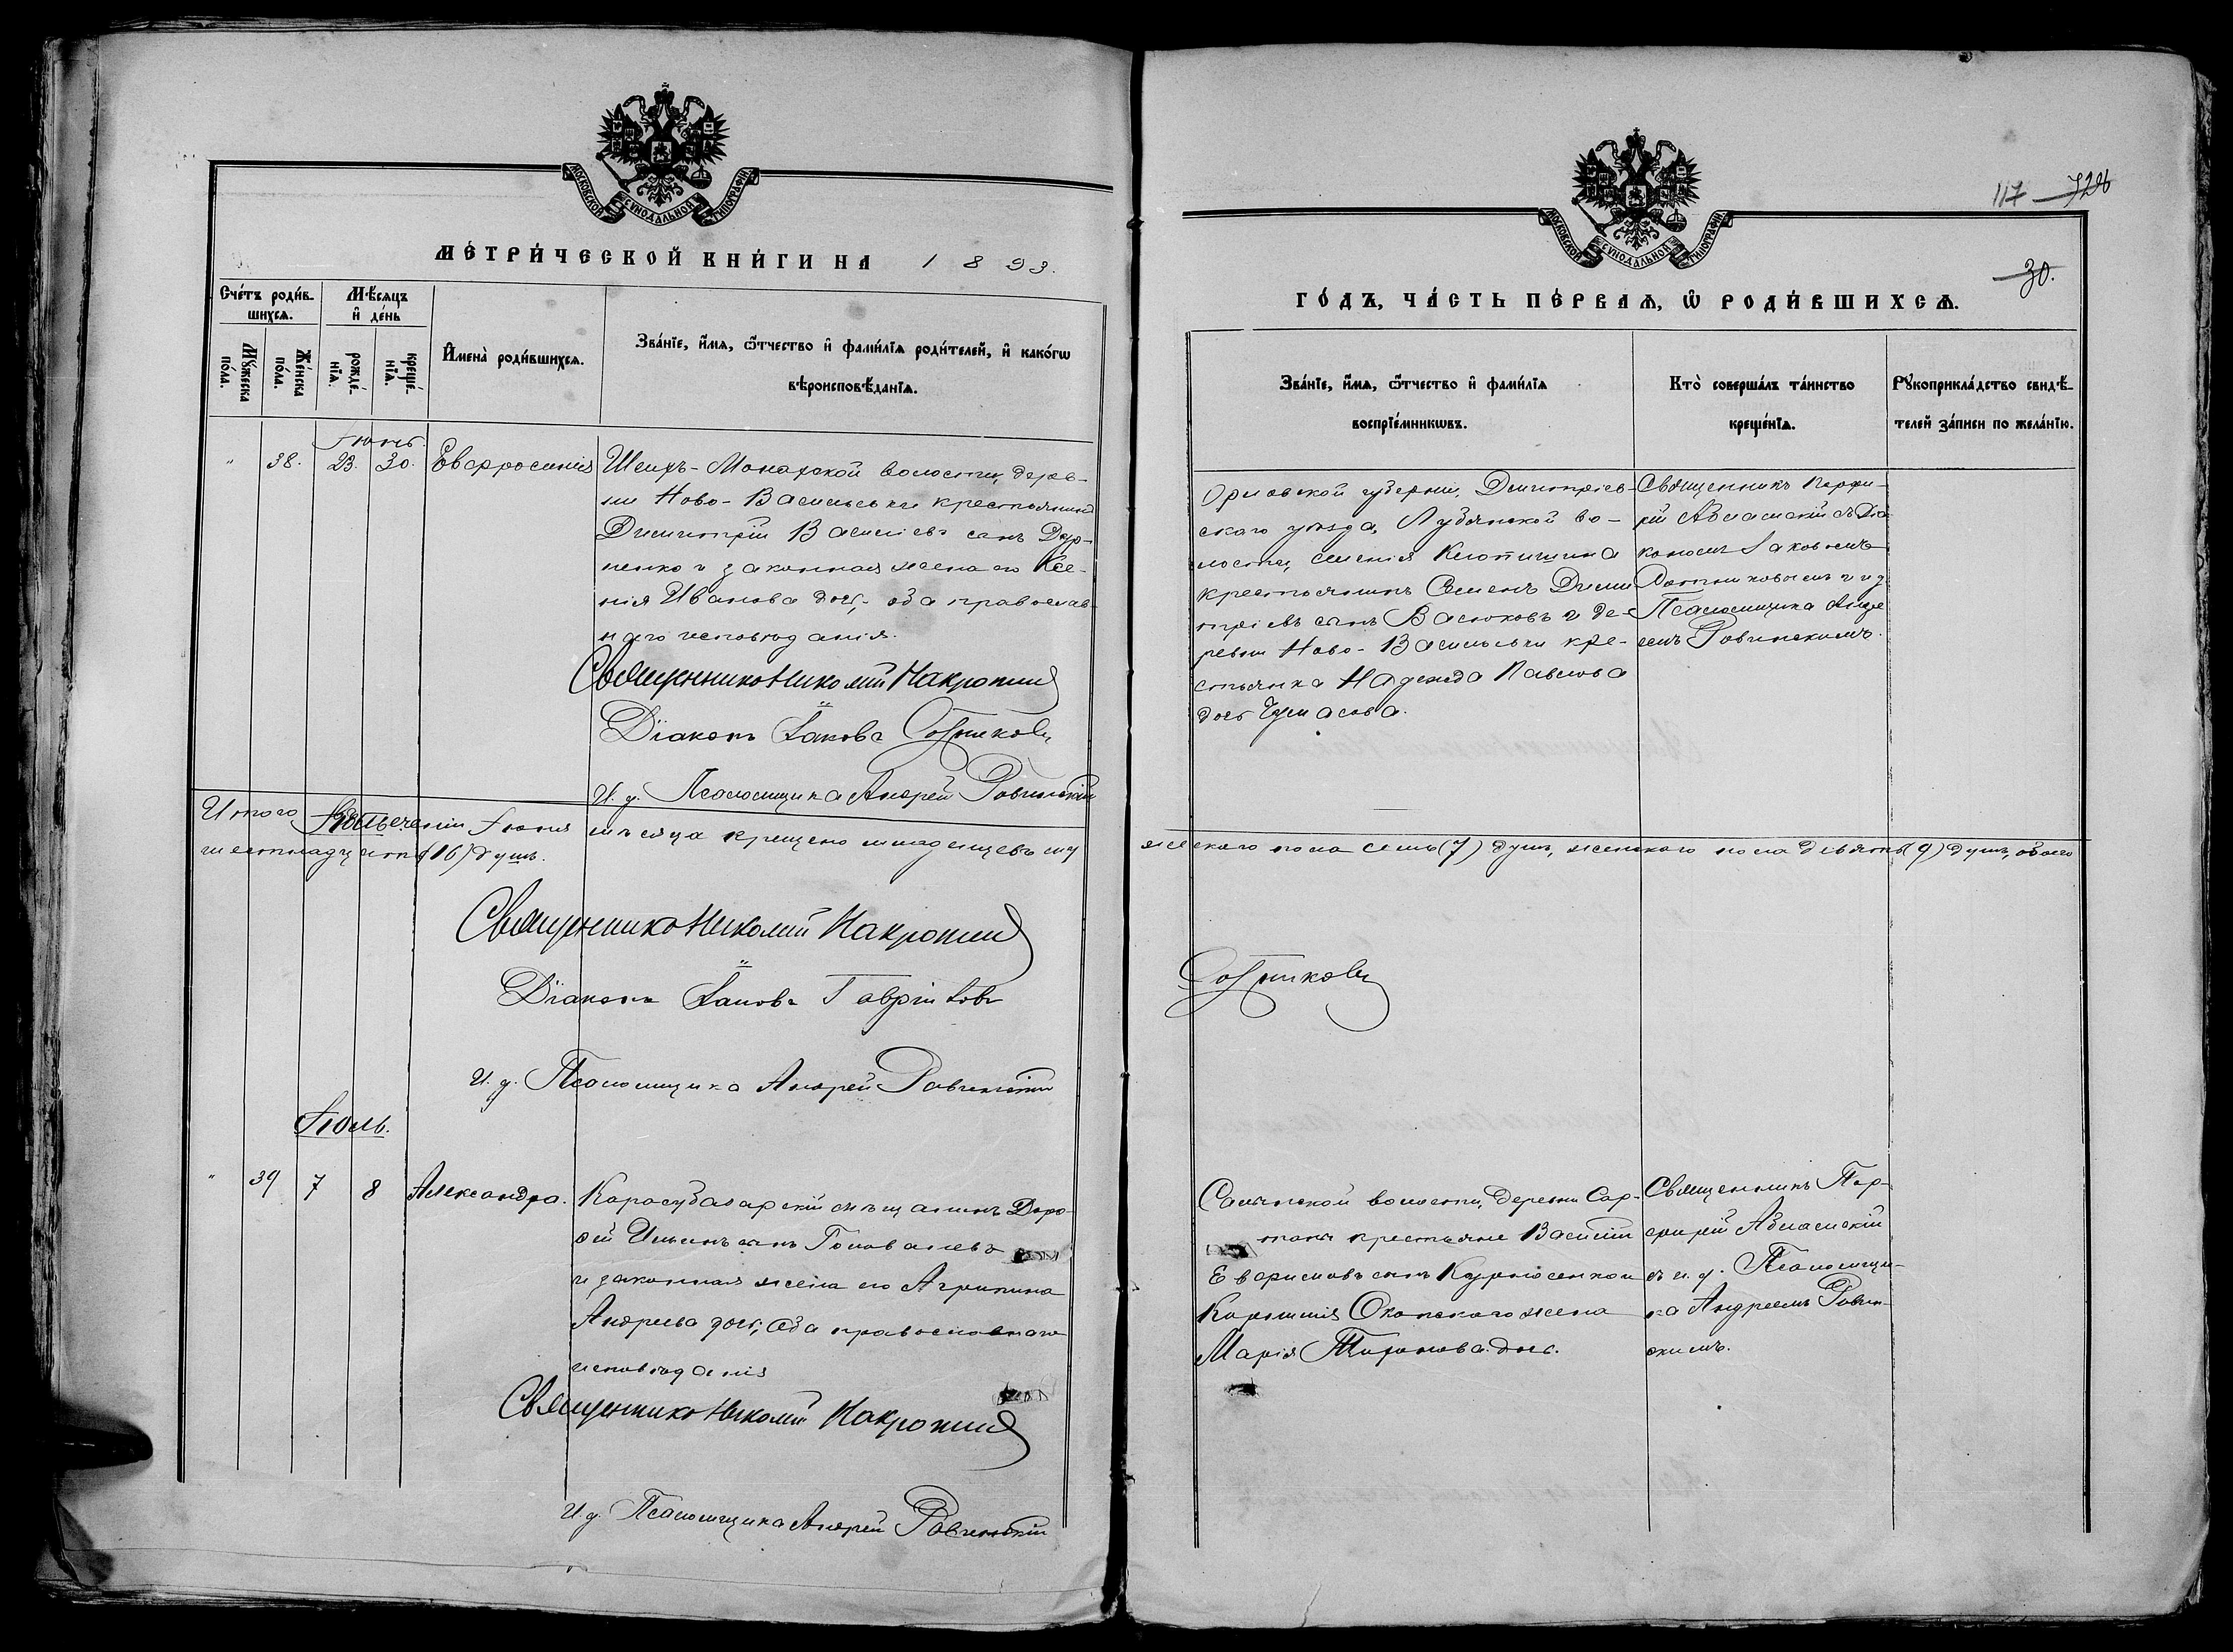 МОСКОВСКОЙ СѴНОДАЛЬНОЙ ТИПОГРАФІИ
МЕТРИ́ЧЕСКОЙ КНИ́ГИ НА 1893.
Сче́тъ роди́в-
шихсѧ.
Мѣ́сѧцъ
и҆ де́нь
Мꙋ́жеска
по́ла.
Же́нска
по́ла.
рожде́-
нїѧ.
креще́-
нїѧ.
И҆мена̀ роди́вшихсѧ.
Зва́нїе, и҆́мѧ, ѻ҆́тчество и҆ фами́лїѧ роди́телей, и҆ како́гѡ
вѣроисповѣ́данїѧ.
Іюнь.
" 38. 23. 30. Евфросинія
Шеихъ-Монахской волости, дерев-
ни Ново-Васильевки крестьянинъ
Димитрій Василіевъ сынъ
и законная жена его Ксе-
нія Иванова доч., оба православ-
наго исповѣданія.
Священникъ Николай Макропти
Діаконъ Іаковъ Сотниковъ
И. д. Псаломщика Андрей Ровинскій
Итого въ теченіи Іюня мѣсяца крещено младенцевъ му
шестнадцать (16) душъ.
Священникъ Николай Макропти
Діаконъ Іаковъ Гавріиловъ
И. д. Псаломщика Андрей Ровинскій
Іюль.
" 39 7 8 Александра.
Карасубазарскій мѣщанинъ Доро-
ѳей Ильинъ сынъ Головачевъ
и законная жена его Агрипина
Андреева доч., оба православнаго
исповѣданія
Священникъ Николай Макропти
И. д. Псаломщика Андрей Ровинскій
МОСКОВСКОЙ СѴНОДАЛЬНОЙ ТИПОГРАФІИ
117 726
30.
ГО́ДЪ, ЧА́СТЬ ПЕ́РВАѦ, Ѡ҆ РОДИ́ВШИХСѦ.
Зва́нїе, и҆́мѧ, ѻ҆́тчество и҆ фами́лїѧ
воспрїе́мникѡвъ.
Кто̀ соверша́лъ та́инство
креще́нїѧ.
Рꙋкоприкла́дство свидѣ́-
телей за́писи по жела́нїю.
Орловской губерніи, Димитріев-
скаго уѣзда, Лубянской во-
лости, селенія Клюшина
крестьянинъ Семенъ Дими
тріевъ сынъ Васюковъ и де-
ревни Ново-Васильевки кре-
стьянка Надежда Павлова
доч.
Священникъ Порфи-
рій Абламскій съ Діа
кономъ Іаковомъ
Сотниковымъ и и д
Псаломщика Андре
емъ Ровинскимъ.
жескаго пола семь (7) душъ, женскаго пола девять (9) душъ, обоего
Сотниковъ
Салынской волости, деревни Сар-
таны крестьяне Василій
сынъ Курносенко и
Корнилія жена
Марія доч.
Священникъ Пор-
фирій Абламскій
съ и. д. Псаломщи-
ка Андреемъ Ровин-
скимъ.